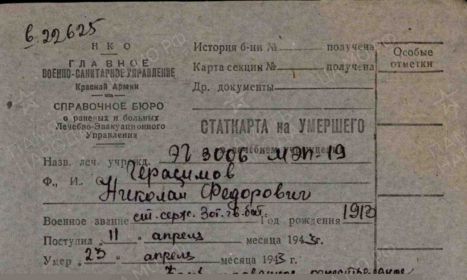 в. 22625
НКО
ГЛАВНОЕ
ВОЕННО-САНИТАРНОЕ УПРАВЛЕНИЕ
Красной Армии
СПРАВОЧНОЕ БЮРО
о раненых и больных
Лечебно-Эвакуационного
Управления
История б-ни № получена
Карта секции № получена
Др. документы
Особые
отметки
СТАТКАРТА на УМЕРШЕГО
в лечебном учреждении
Назв. леч. учрежд. ЭГ 3006 МЭП-19
Ф., И., О. Герасимов
Николай Федорович
Военное звание ст. серж. Год рождения 1910
Поступил 11 апрель месяца 1943г.
Умер 23 апрель месяца 1943г.